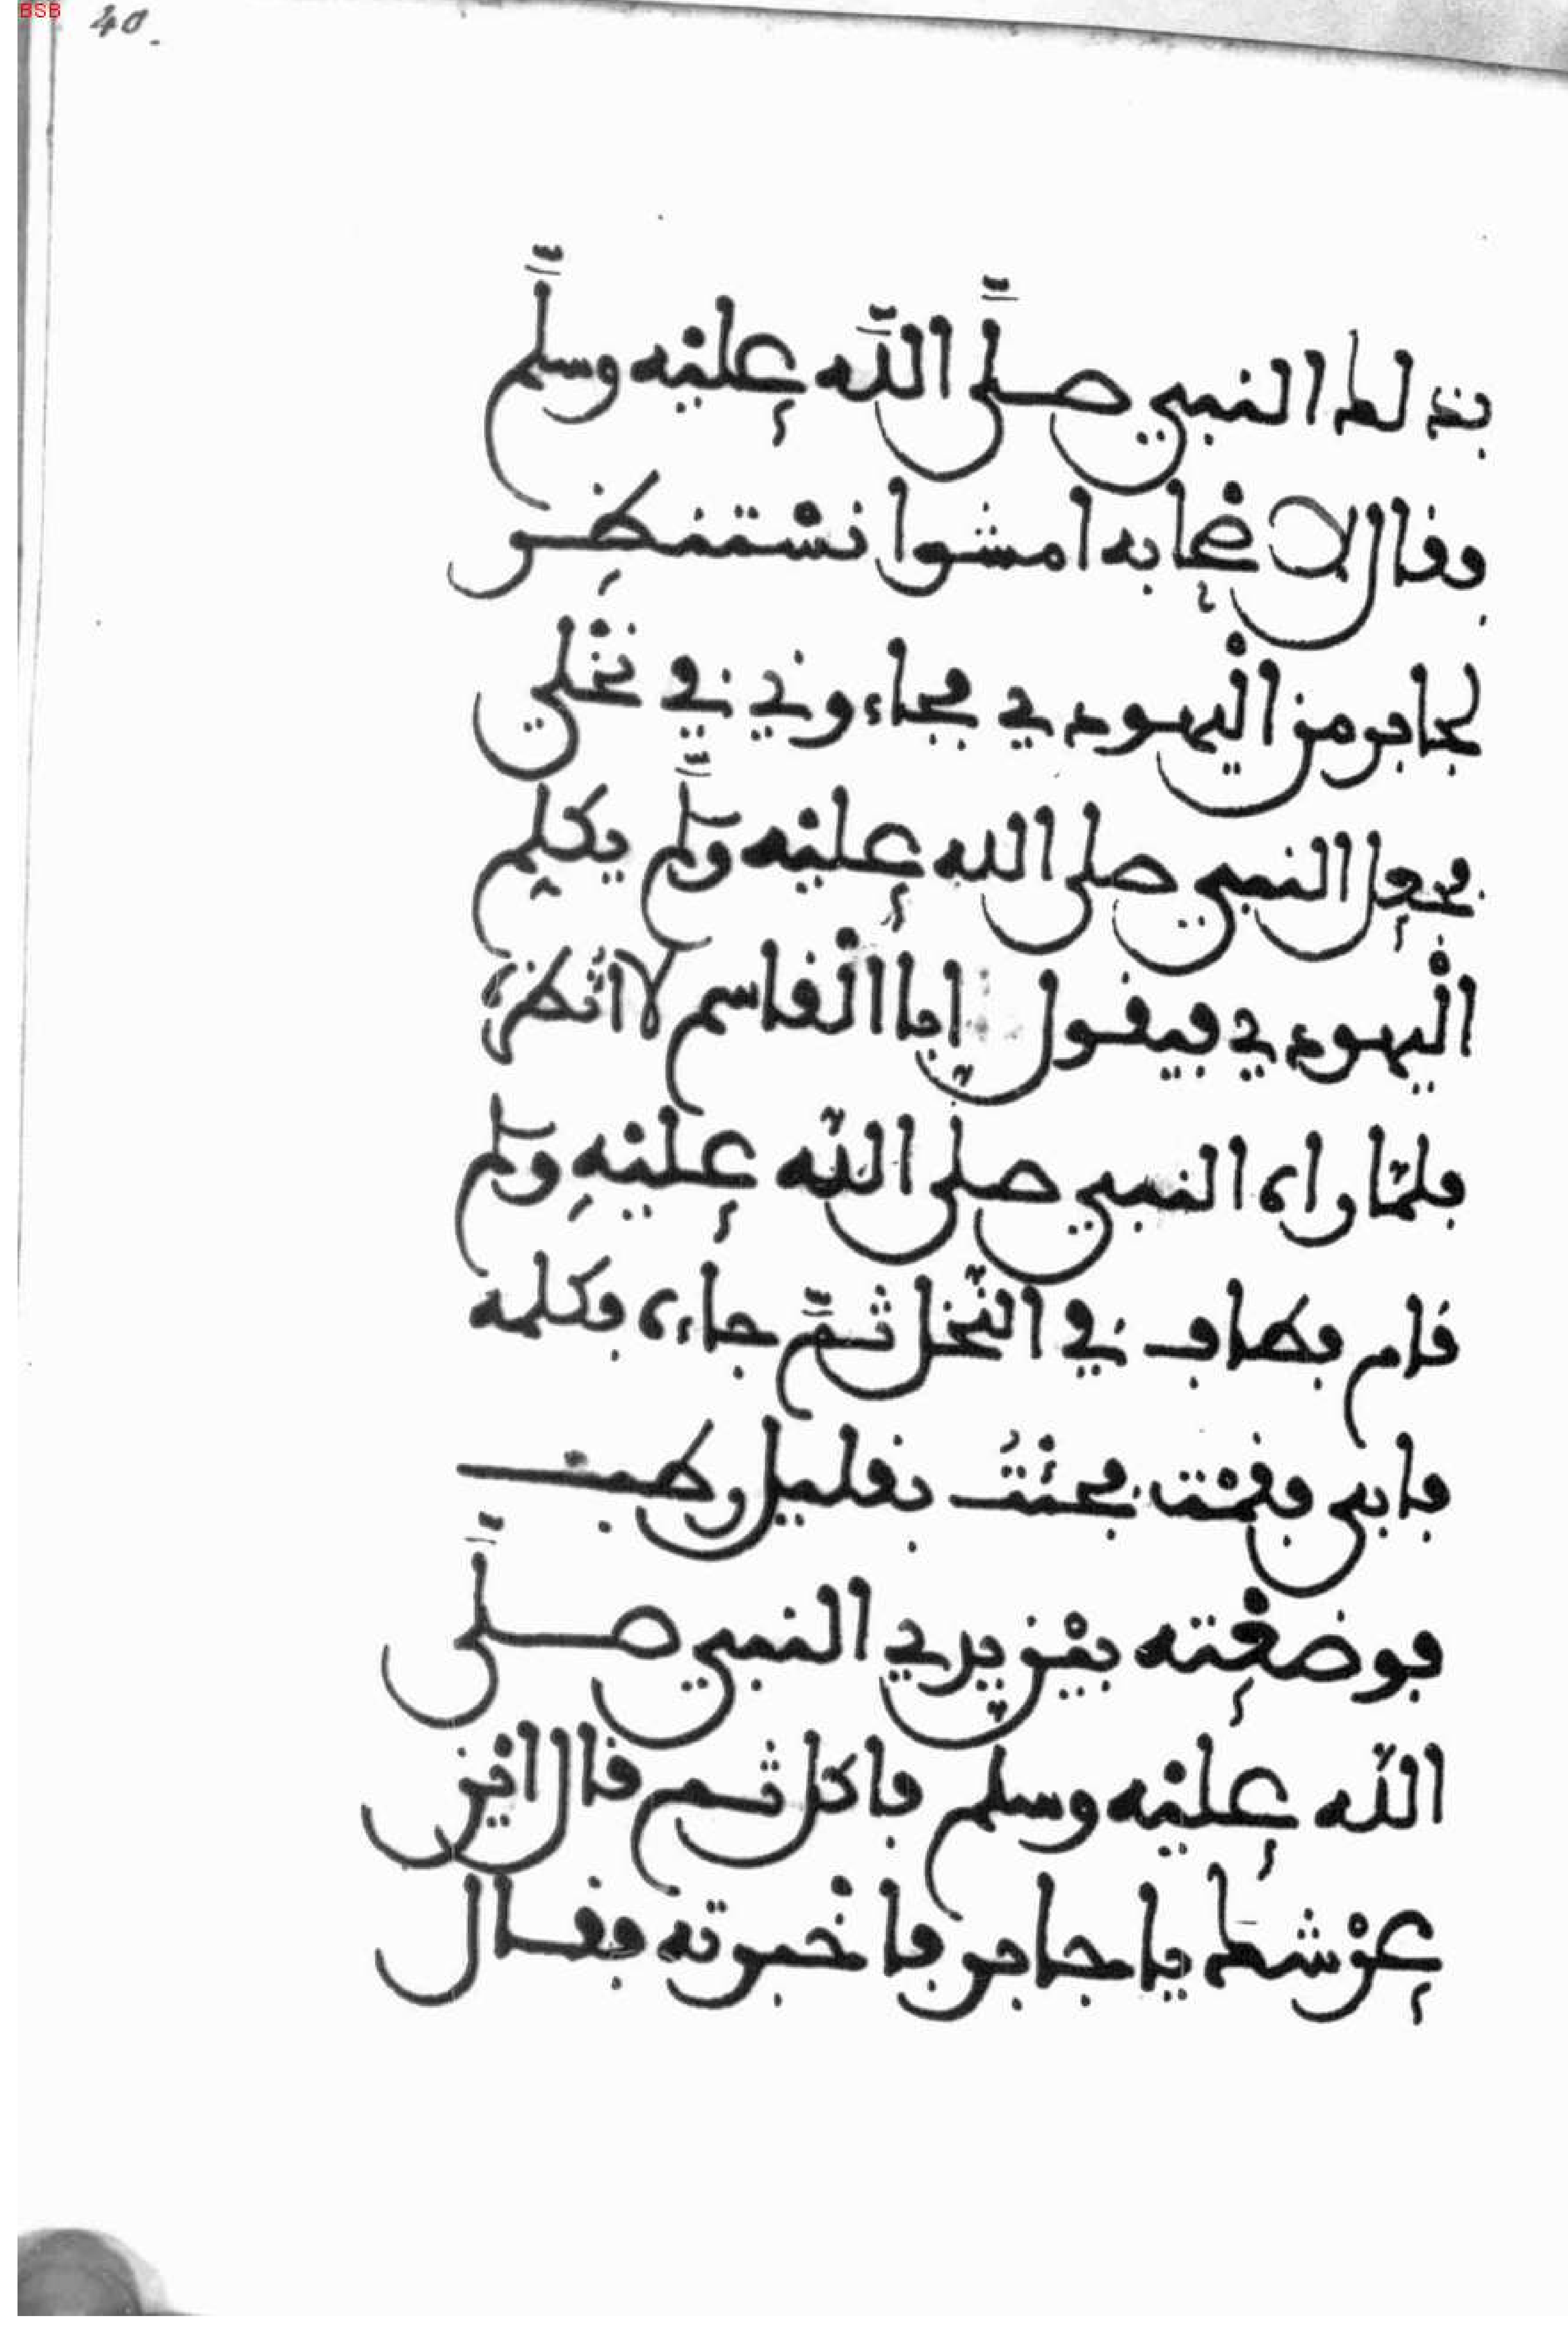 BSB
40.
بذلك النبي صلَّى اللَّه عليْه وسلَّم
فقال لاصْحابه امشوا نسْتنظِر
لجابر من الْيهودي فجاءوني في نخْلي
فجعل النبي صلى الله عليْه وسلَّم يكلِّم
الْيهودي فيقول ابا الْقاسم لا انْظره
فلمّا راه النبي صلى اللّه عليْهِ وسلم
قام فطاف في النّخل ثمَّ جاءه فكلمه
فابى فقمْت فجئْتُ بقليل رطب
فوضعْته بيْن يدي النبي صلَّى
اللّه عليْه وسلم فاكل ثم قال ايْن
عرْشك يا جابر فاخْبرته فقال